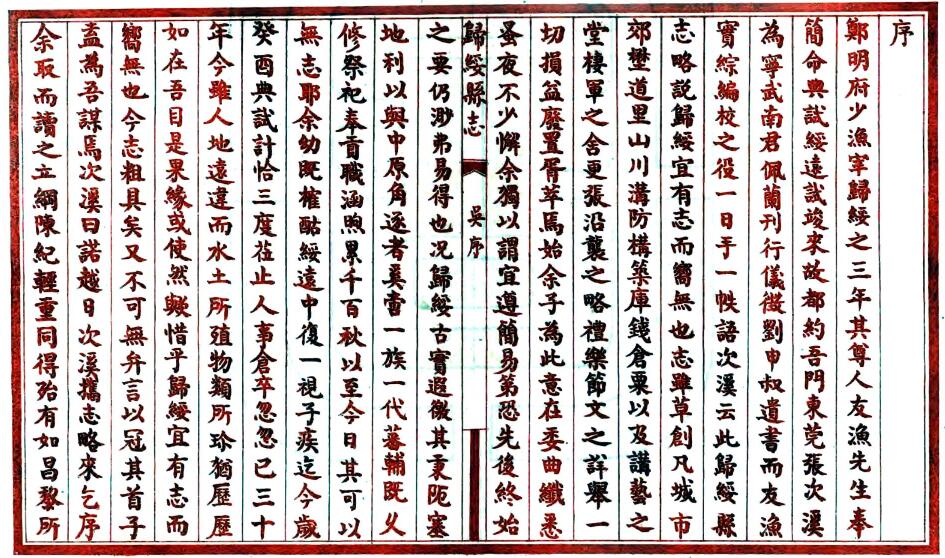 序
鄭明府少漁宰歸綏之三年其尊人友漁先生奉
簡命典試綏遠試竣來故都約吾門東莞張次溪
為寧武南君佩蘭刊行儀徵劉申叔遺書而友漁
實綜編校之役一日手一帙語次溪云此歸綏縣
志略說歸綏宜有志而嚮無也志雖草創凡城市
郊壄道里山川溝防構築庫錢倉粟以及講藝之
堂棲軍之舍更張沿襲之略禮樂節文之詳舉一
切損益廢置胥萃焉始余子為此意在委曲纖悉
蚤夜不少懈余獨以謂宜遵簡易第恐先後終始
歸綏縣志
吳序
之要仍渺弗易得也況歸綏古實遐徼其秉阨塞
地利以與中原角逐者奚啻一族一代蕃輔既久
修祭祀奉貢職涵煦累千百秋以至今日其可以
無志耶余幼既榷酤綏遠中復一視子疾迄今歲
癸酉典試計恰三度莅止人事倉卒忽忽已三十
年今雖人地遠違而水土所殖物類所珍猶歷歷
如在吾目是果緣或使然歟惜乎歸綏宜有志而
嚮無也今志粗具矣又不可無弁言以冠其首子
盍為吾謀焉次溪曰諾越日次溪攜志略來乞序
余取而讀之立綱陳紀輕重同得殆有如昌黎所